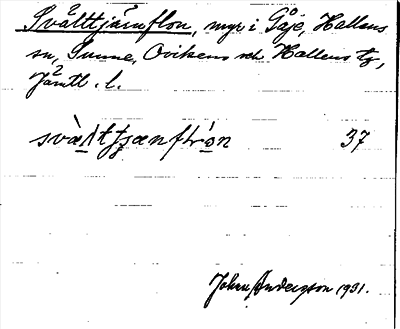 Svälttjärnflon, myr i Gåje, Hallens
sn, Sunne, Ovikens och Hallens tg,
Jämtl. l.
svàltt̯jænfłr·ón 37
Johan Anderzson 1931.